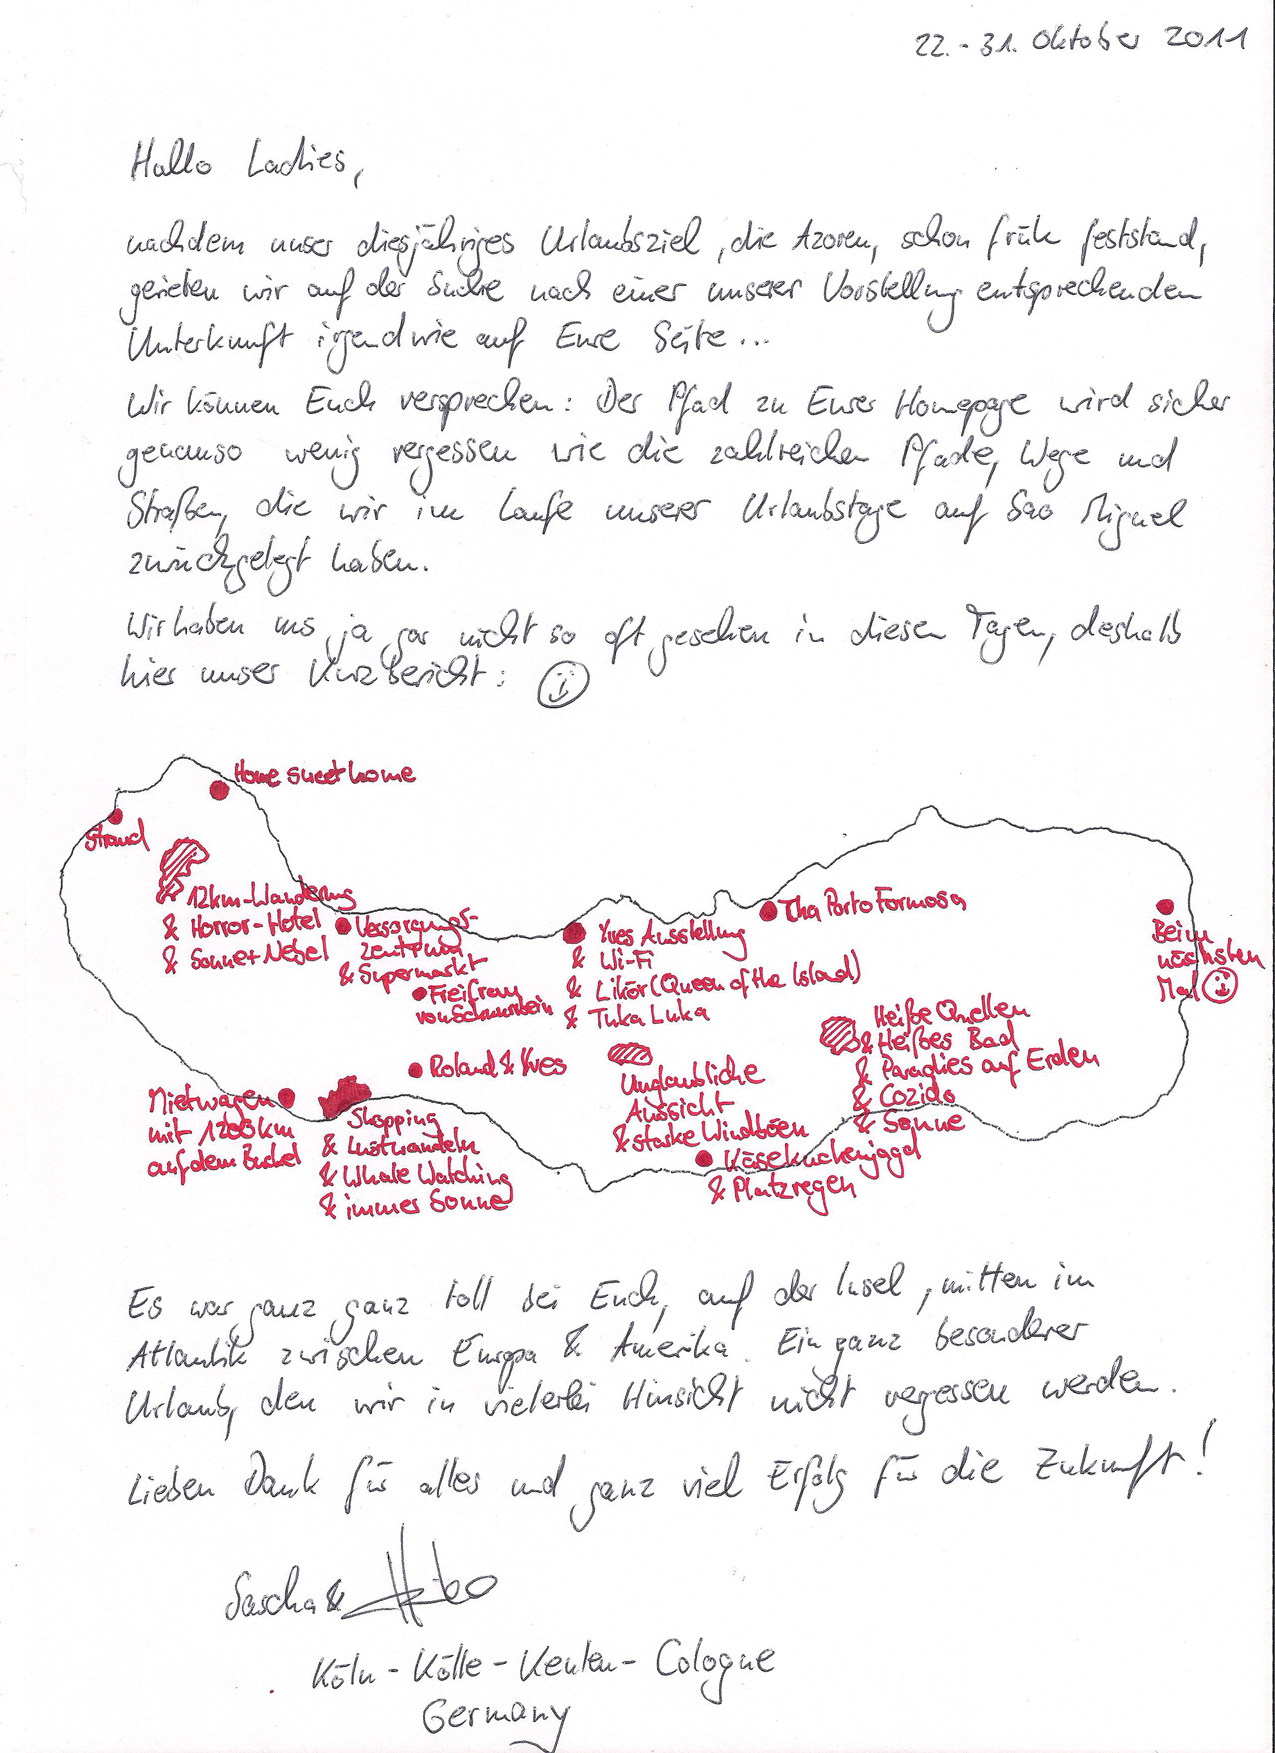 22. - 31. Oktober 2011
Hallo Ladies,
nachdem unser diesjähriges Urlaubsziel, die Azoren, schon früh feststand,
gerieten wir auf der Suche nach einer unserer Vorstellung entsprechenden
Unterkunft irgendwie auf Eure Seite...
Wir können Euch versprechen: Der Pfad zu Eurer Homepage wird sicher
genauso wenig vergessen wie die zahlreichen Pfade, Wege und
Straßen, die wir im Laufe unserer Urlaubstage auf Sao Miguel
zurückgelegt haben.
Wir haben uns ja gar nicht so oft gesehen in diesen Tagen, deshalb
hier unser Kurzbericht:
Home sweet home
Strand
12km-Wanderung
& Horror-Hotel
& Sonne + Nebel
Versorgungs-
zentrum
& Supermarkt
Freifrau
von
Yves Ausstellung
& Wi-Fi
& Likör (Queen of the Island)
& Tuka Luka
Cha Porto Formosa
Beim
nächsten
Mal
Heiße Quellen
& Heißes Bad
& Paradies auf Erden
& Cozido
& Sonne
Roland & Yves
Unglaubliche
Aussicht
& starke Windböen
Mietwagen
mit 1200km
auf dem Buckel
Shopping
& Lustwandeln
& Whale Watching
& immer Sonne
Käsekuchenjagd
& Platzregen
Es war ganz ganz toll bei Euch, auf der Insel, mitten im
Atlantik zwischen Europa & Amerika. Ein ganz besonderer
Urlaub, den wir in vielerlei Hinsicht nicht vergessen werden.
Lieben Dank für alles und ganz viel Erfolg für die Zukunft!
Sascha &
Köln - Kölle - Keulen - Cologne
Germany